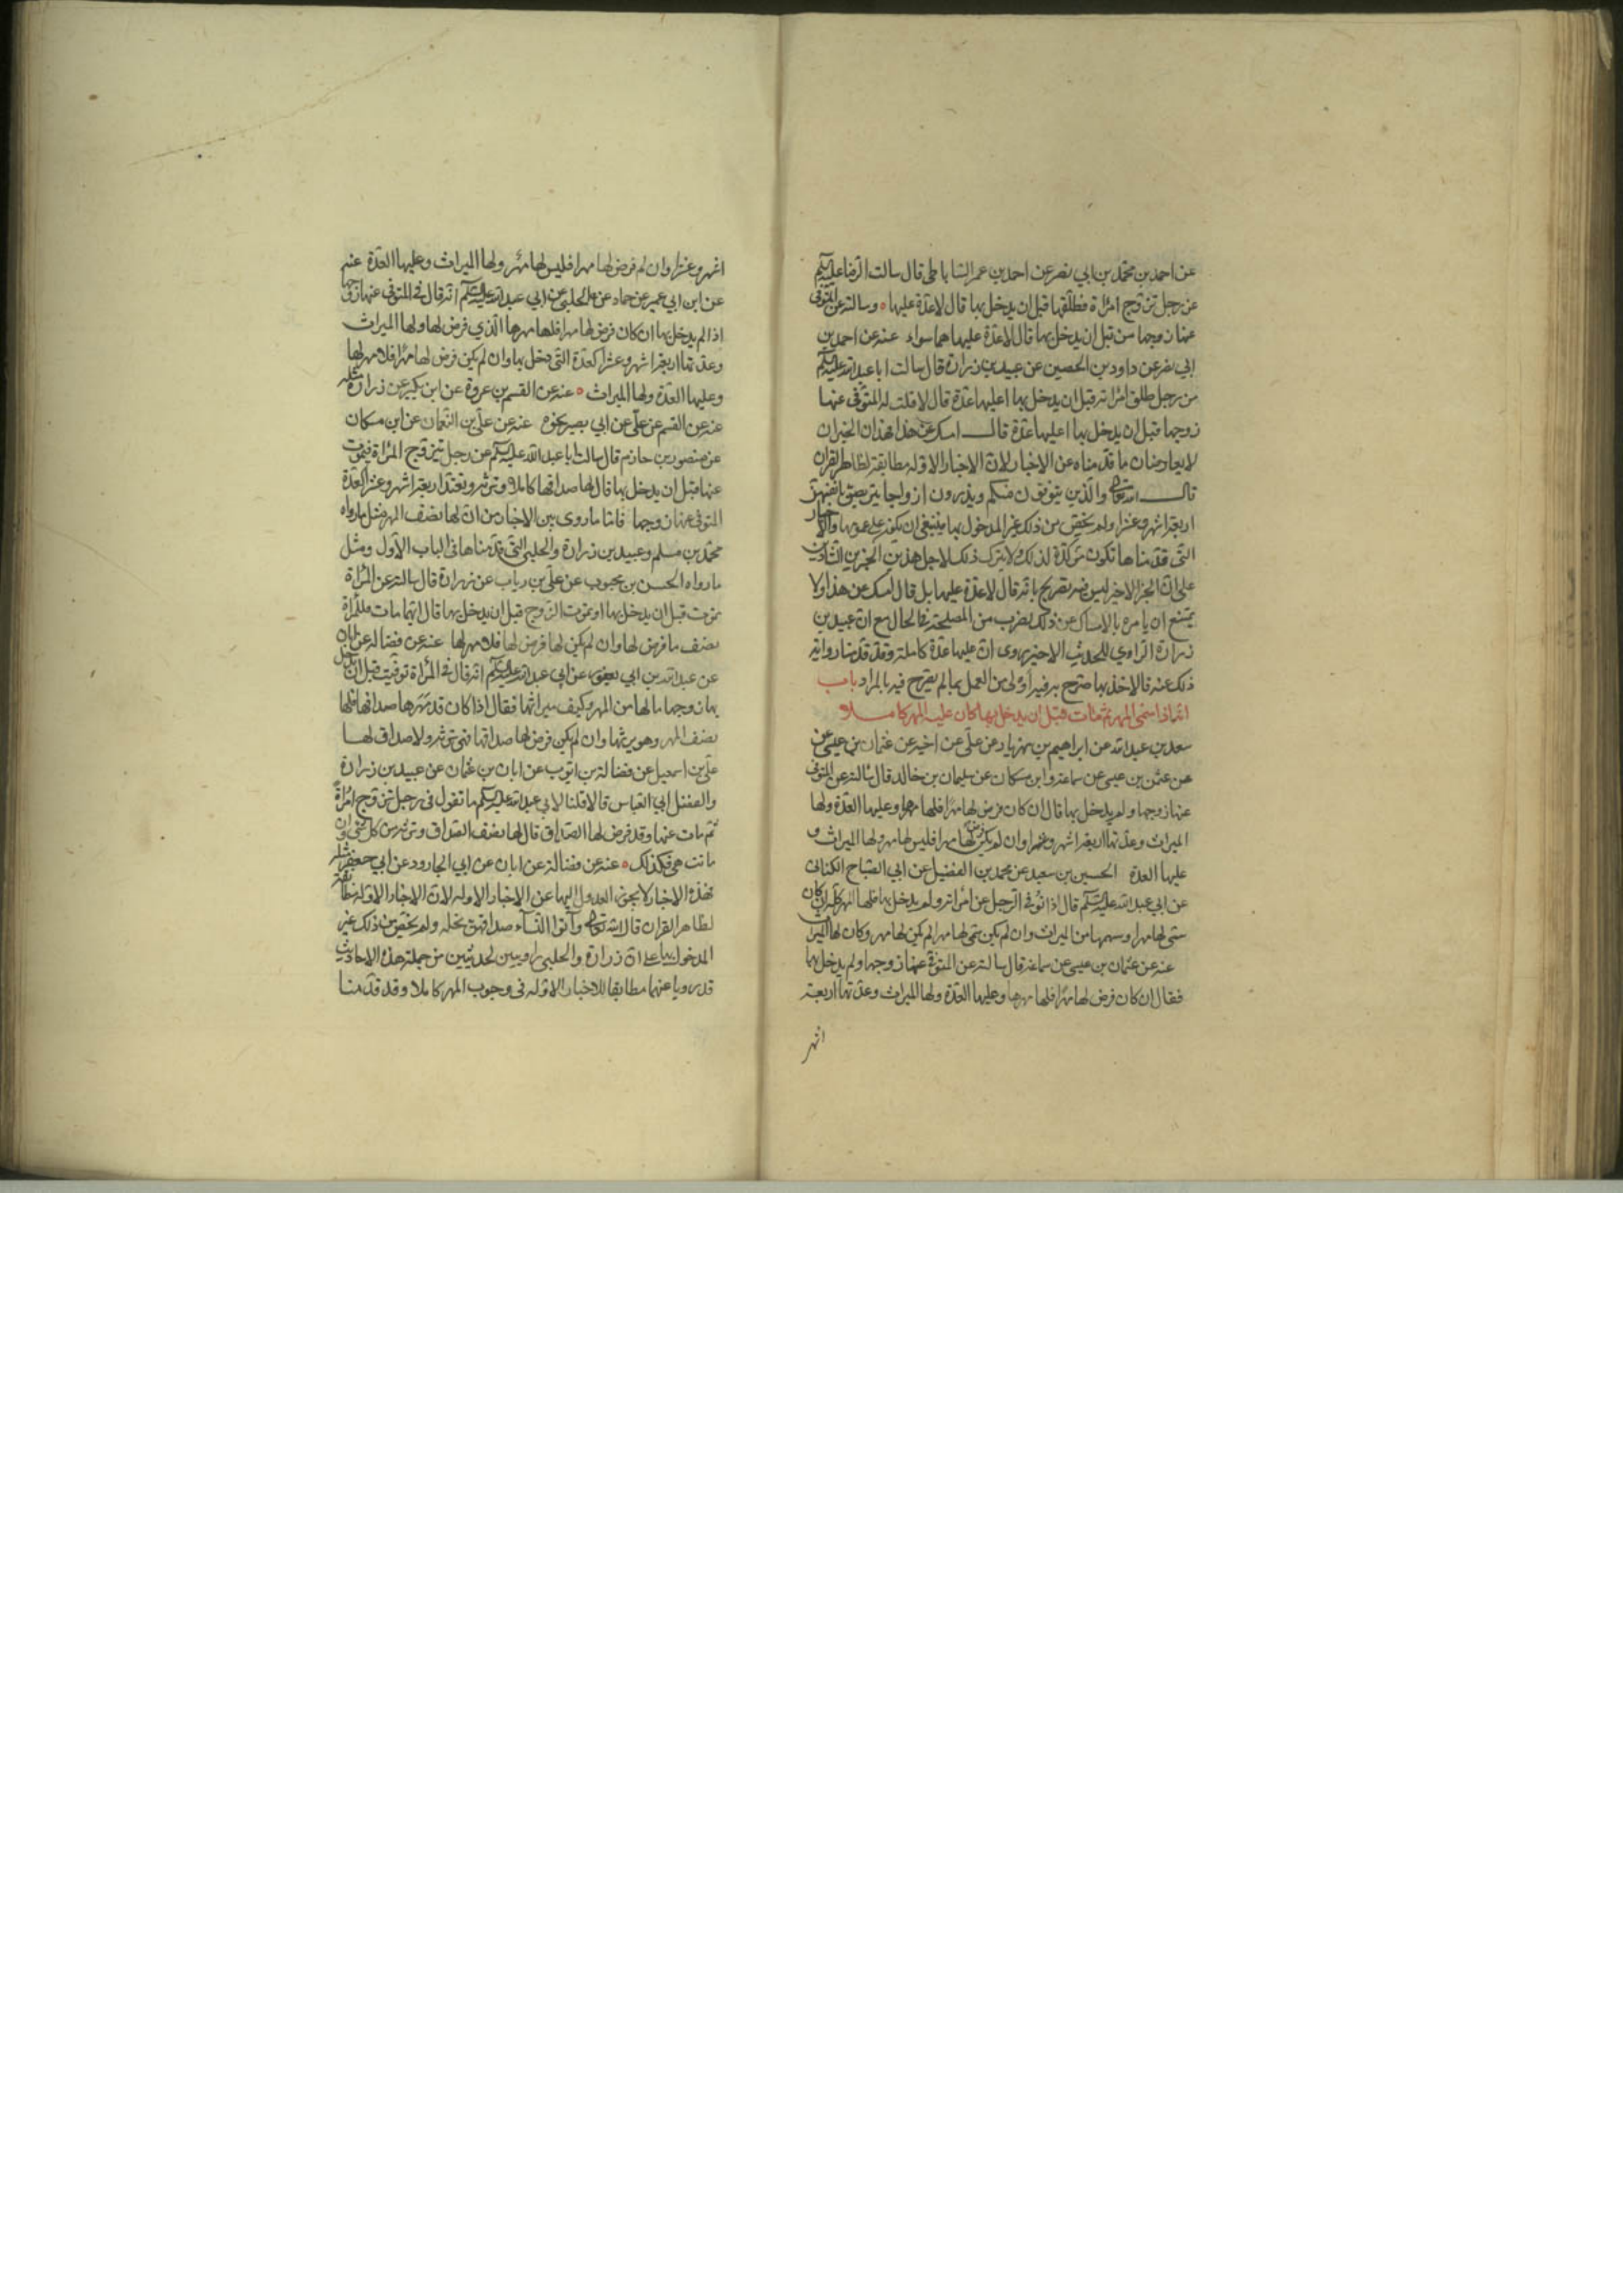 عن احمد بن محمد بن ابي نصر عن احمد بن عمر الساباطي قال سالت الرضا عليه السلام
عن رجل تزوج امراة فطلقها قبل ان يدخل بها قال لا عدة عليها وسالته عن المتوفى
عنها زوجها من قبل ان يدخل بها قال لا عدة عليها هما سواء عنه عن احمد بن
ابي نصر عن داود بن الحصين عن عبيد بن زرارة قال سالت ابا عبد الله عليه السلام
من رجل طلق امراته قبل ان يدخل بها اعليها عدة قال لا قلت له المتوفى عنها
زوجها قبل ان يدخل بها اعليها عدة قال امسك عن هذا فهذان الخبران
لا يعارضان ما قدمناه عن الاخبار لان الاخبار الاوله مطابقة لظاهر القران
قال الله تعالى والذين يتوفون منكم ويذرون ازواجا يتربصن بانفسهن
اربعة اشهر وعشرا ولم يخص من ذلك غير المدخول بها فينبغي ان يكون على عمومها والاخبار
التي قدمناها تكون مؤكدة لذلك ولا يترك ذلك لاجل هذين الخبرين الشاذين
على ان الخبر الاخير ليس فيه تصريح بانه قال لا عدة عليها بل قال امسك عن هذا ولا
يمتنع ان يامره بالامساك عن ذلك لضرب من المصلحة في الحال مع ان عبيد بن
زرارة الراوي للحديث الاخير روى ان عليها عدة كاملة وقد قدمنا روايته
ذلك عنه فالاخذ بما صرح به فيه اولى من العمل بما لم يصرح فيه بالمراد باب
انه اذا سمى المهر ثم مات قبل ان يدخل بها كان عليه المهر كاملا
سعد بن عبد الله عن ابراهيم بن مهزيار عن علي عن اخيه عن عثمان بن عيسى عن
عن عثمن بن عيسى عن سماعة وابن مسكان عن سليمان بن خالد قال سالته عن المتوفى
عنها زوجها ولم يدخل بها قال ان كان فرض لها مهرا فلها مهرها وعليها العدة ولها
الميراث وعدتها اربعة اشهر وعشرا وان لم يكن فرض لها مهرا فليس لها مهر ولها الميراث و
عليها العدة الحسين بن سعيد عن محمد بن الفضيل عن ابي الصباح الكناني
عن ابي عبد الله عليه السلام قال اذا توفي الرجل عن امراته ولم يدخل بها فلها المهر كله ان كان
سمى لها مهرا وسهمها من الميراث وان لم يكن سمى لها مهرا لم يكن لها مهر وكان لها الميراث
عنه عن عثمان بن عيسى عن سماعة قال سالته عن المتوفى عنها زوجها ولم يدخل بها
فقال ان كان فرض لها مهرا فلها مهرها وعليها العدة ولها الميراث وعدتها اربعة
اشهر
اشهر وعشرا وان لم فرض لها مهرا فليس لها مهر ولها الميراث وعليها العدة عنه
عن ابن ابي عمير عن حماد عن الحلبي عن ابي عبد الله عليه السلام انه قال في المتوفى عنها زوجها
اذا لم يدخل بها ان كان فرض لها مهرا فلها مهرها الذي فرض لها ولها الميراث
وعدتها اربعة اشهر وعشرا كعدة التي دخل بها وان لم يكن فرض لها مهرا فلا مهر لها
وعليها العدة ولها الميراث عنه عن القسم بن عروة عن ابن بكير عن زرارة مثله
عنه عن القسم عن علي عن ابي بصير نحوه عنه عن علي بن النعمان عن ابن مسكان
عن منصور بن حازم قال سالت ابا عبد الله عليه السلام عن رجل يتزوج المراة فيموت
عنها قبل ان يدخل بها قال لها صداقها كاملا وترثه وتعتد اربعة اشهر وعشرا كعدة
المتوفى عنها زوجها فاما ما روى بين الاخبار من ان لها نصف المهر مثل ما رواه
محمد بن مسلم وعبيد بن زرارة والحلبي التي قدمناها في الباب الاول ومثل
ما رواه الحسن بن محبوب عن علي بن رياب عن زرارة قال سالته عن المراة
تموت قبل ان يدخل بها او يموت الزوج قبل ان يدخل بها قال ايهما مات فللمراة
نصف ما فرض لها وان لم يكن لها فرض لها فلا مهر لها عنه عن فضالة عن ابان
عن عبد الله بن ابي يعفور عن ابي عبد الله عليه السلام انه قال في المراة توفيت قبل ان يدخل
بها زوجها ما لها من المهر وكيف ميراثها فقال اذا كان قد مهرها صداقها فلها
نصف المهر وهو يرثها وان لم يكن فرض لها صداقا فهي ترثه ولا صداق لها
علي بن اسمعيل عن فضالة بن ايوب عن ابان بن عثمان عن عبيد بن زرارة
والفضل ابي العباس قالا قلنا لابي عبد الله عليه السلام ما تقول في رجل تزوج امراة
ثم مات عنها وقد فرض لها الصداق قال لها نصف الصداق وترثه من كل شيء وان
ماتت هي فكذلك عنه عن فضالة عن ابان عن ابي الجارود عن ابي جعفر مثله
فهذه الاخبار لا يجوز العدول اليها عن الاخبار الاوله لان الاخبار الاوله مطابقة
لظاهر القران قال الله تعالى وآتوا النساء صدقاتهن نحله ولم يخص من ذلك غير
المدخول بها على ان زرارة والحلبي راويين لحديثين من جملة هذه الاحاديث
قد رويا عنهما مطابقا للاخبار الاوله في وجوب المهر كاملا وقد قدمنا